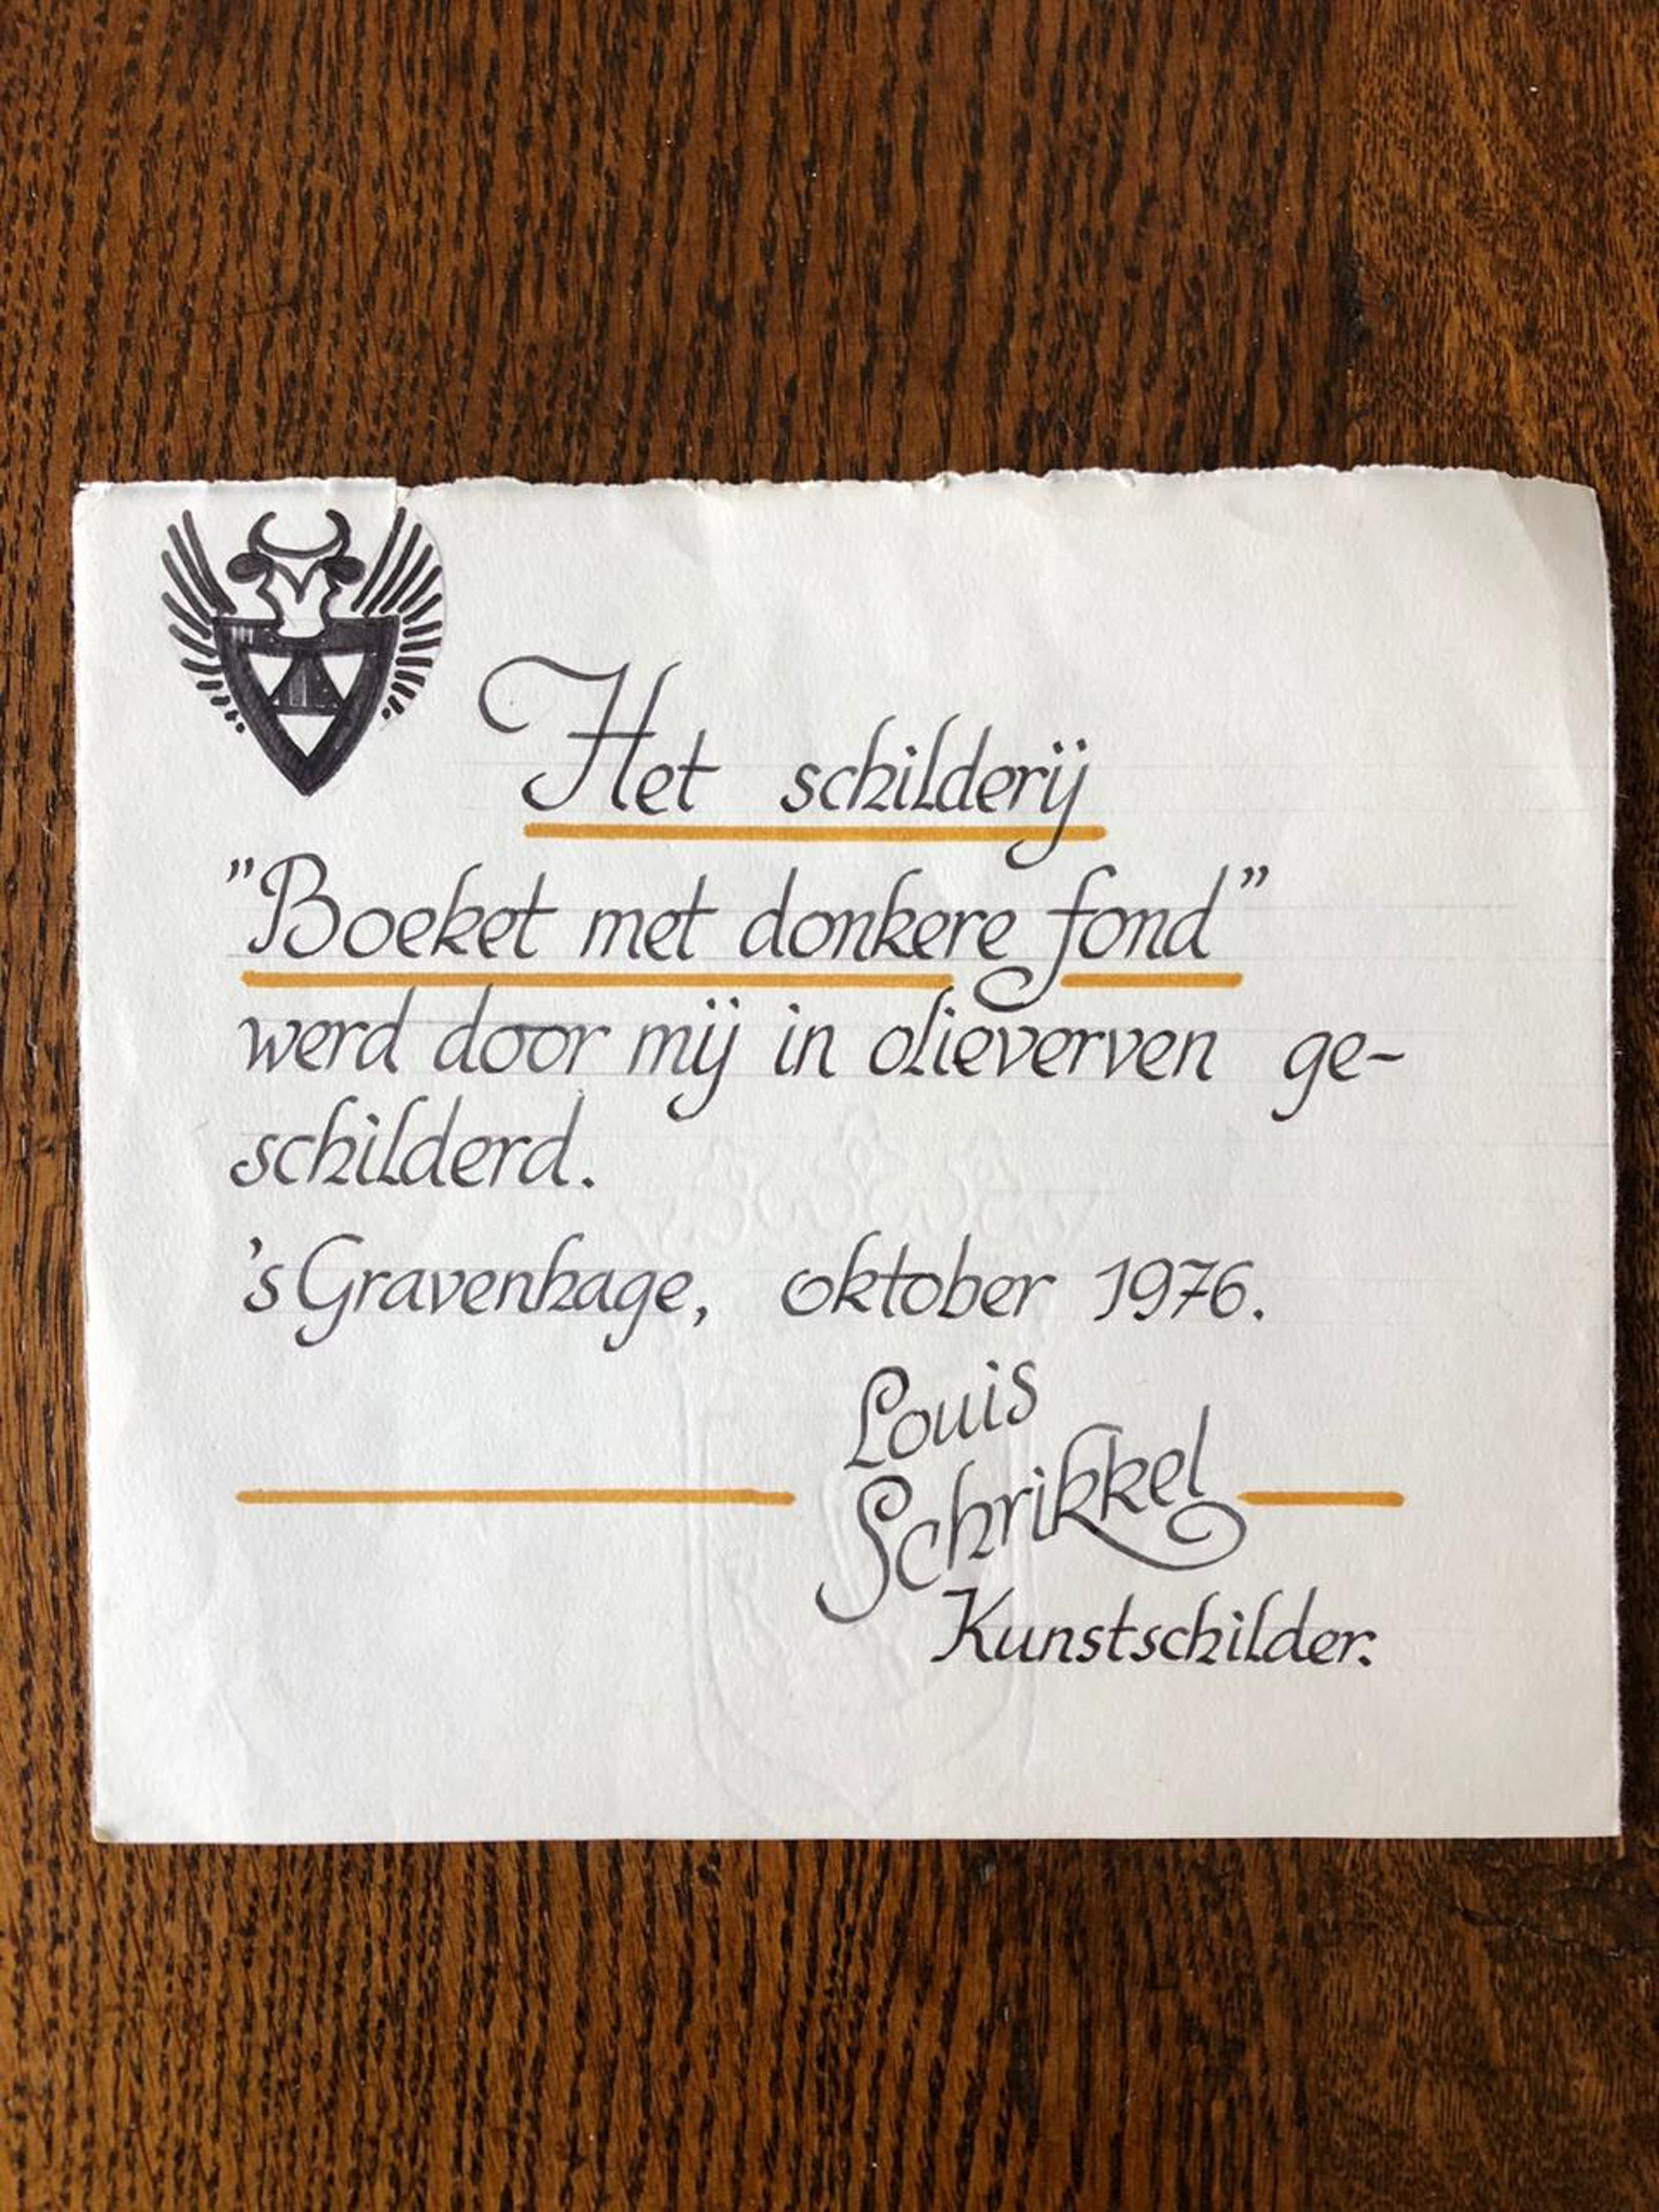 Het schilderij
"Boeket met donkere fond"
werd door mij in olieverven ge-
schilderd.
's Gravenhage, oktober 1976.
Louis
Schrikkel
Kunstschilder.